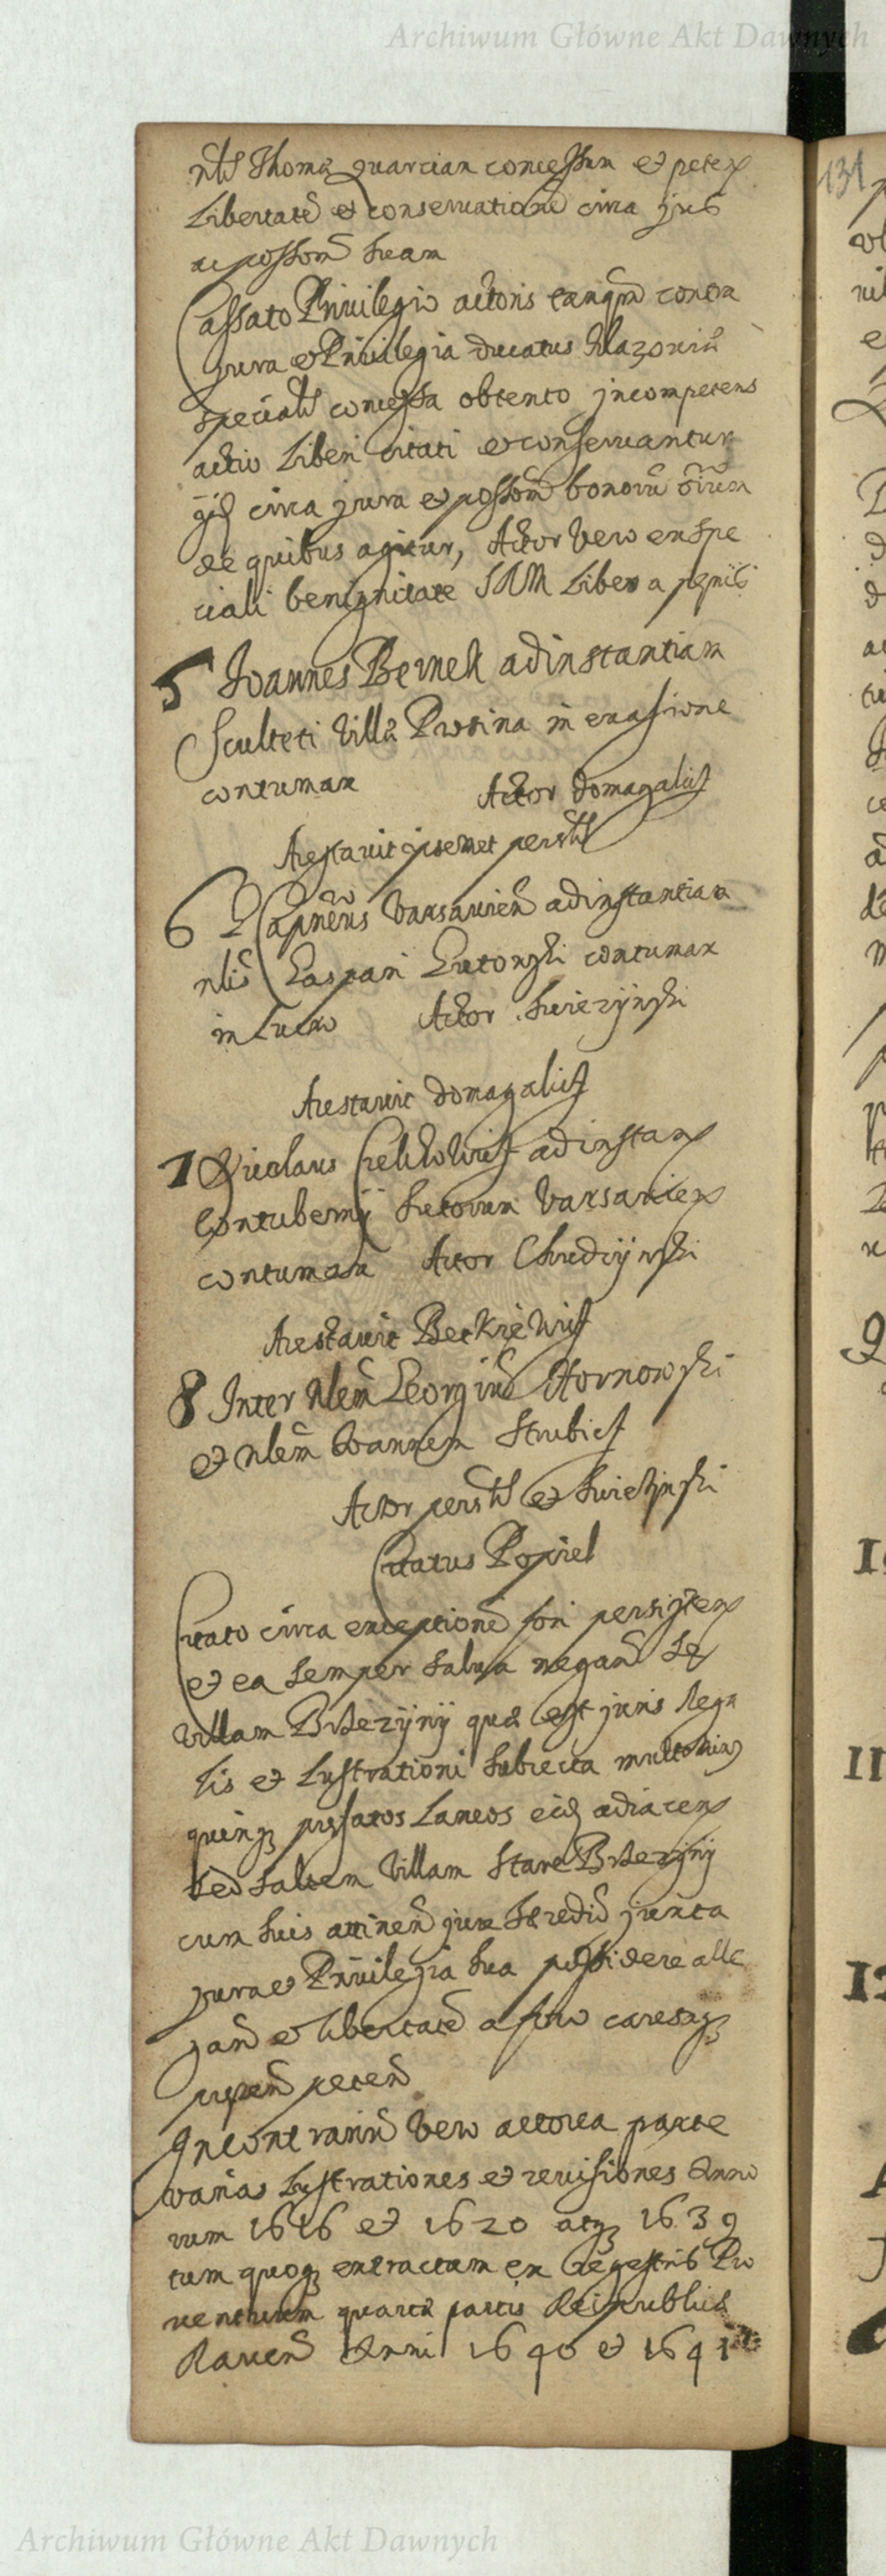 Archiwum Główne Akt Dawnych
131
Thomæ concessum et peten
Libertatē et conservationē circa jus
ac possom̄ suam
Cassato Privilegio actoris tanqm̄ contra
jura et Privilegia Ducatus Mazoviæ
specialr concessa obtento incompetens
actio Liberi citati et conservantur
circa jura et possom̄ bonorū oīum
de quibus agitur, Actor vero ex spe
ciali benignitate SRM Liber a pœnis
5 Joannes Bernek ad instantiam
Sculteti Villæ in evasione
contumax Actor Domagalicz
Arestavit ipsemet persēs
6 Varsavien̄ ad instantiam
nlis Caspari contumax
in lucro Actor Swiezynski
Arestavit Domagalicz
7 ad instan
Contubernij Sutorum Varsavien
contumax Actor Chudzynski
Arestavit Beckiewicz
8 Inter Nlem̄ Georgiū Hornowski
et Nlem̄ Joannem Strubicz
Actor persēs et Swiezynski
Citatus Popiel
Citato circa exceptionē fori persisten
et ea semper salva negan̄ se
villam Brzezyny quæ est juris Rega
lis et Lustrationi subiecta
quinq præfatos Laneos eid adiacen
sed saltem Villam Stare Brzezyny
cum suis attinen̄ jure hæredio juxta
jura et Privilegia sua possidere alle
gan̄ et libertatē a foro
peten̄
In contrariū vero actorea parte
varias Lustrationes et revisiones Anno
rum 1616 et 1620 atq 1639
tum quoq extractum ex Regestris Pro
ventuum quartæ partis Reipublicæ
Raven̄ Anni 1640 et 1641
Archiwum Główne Akt Dawnych